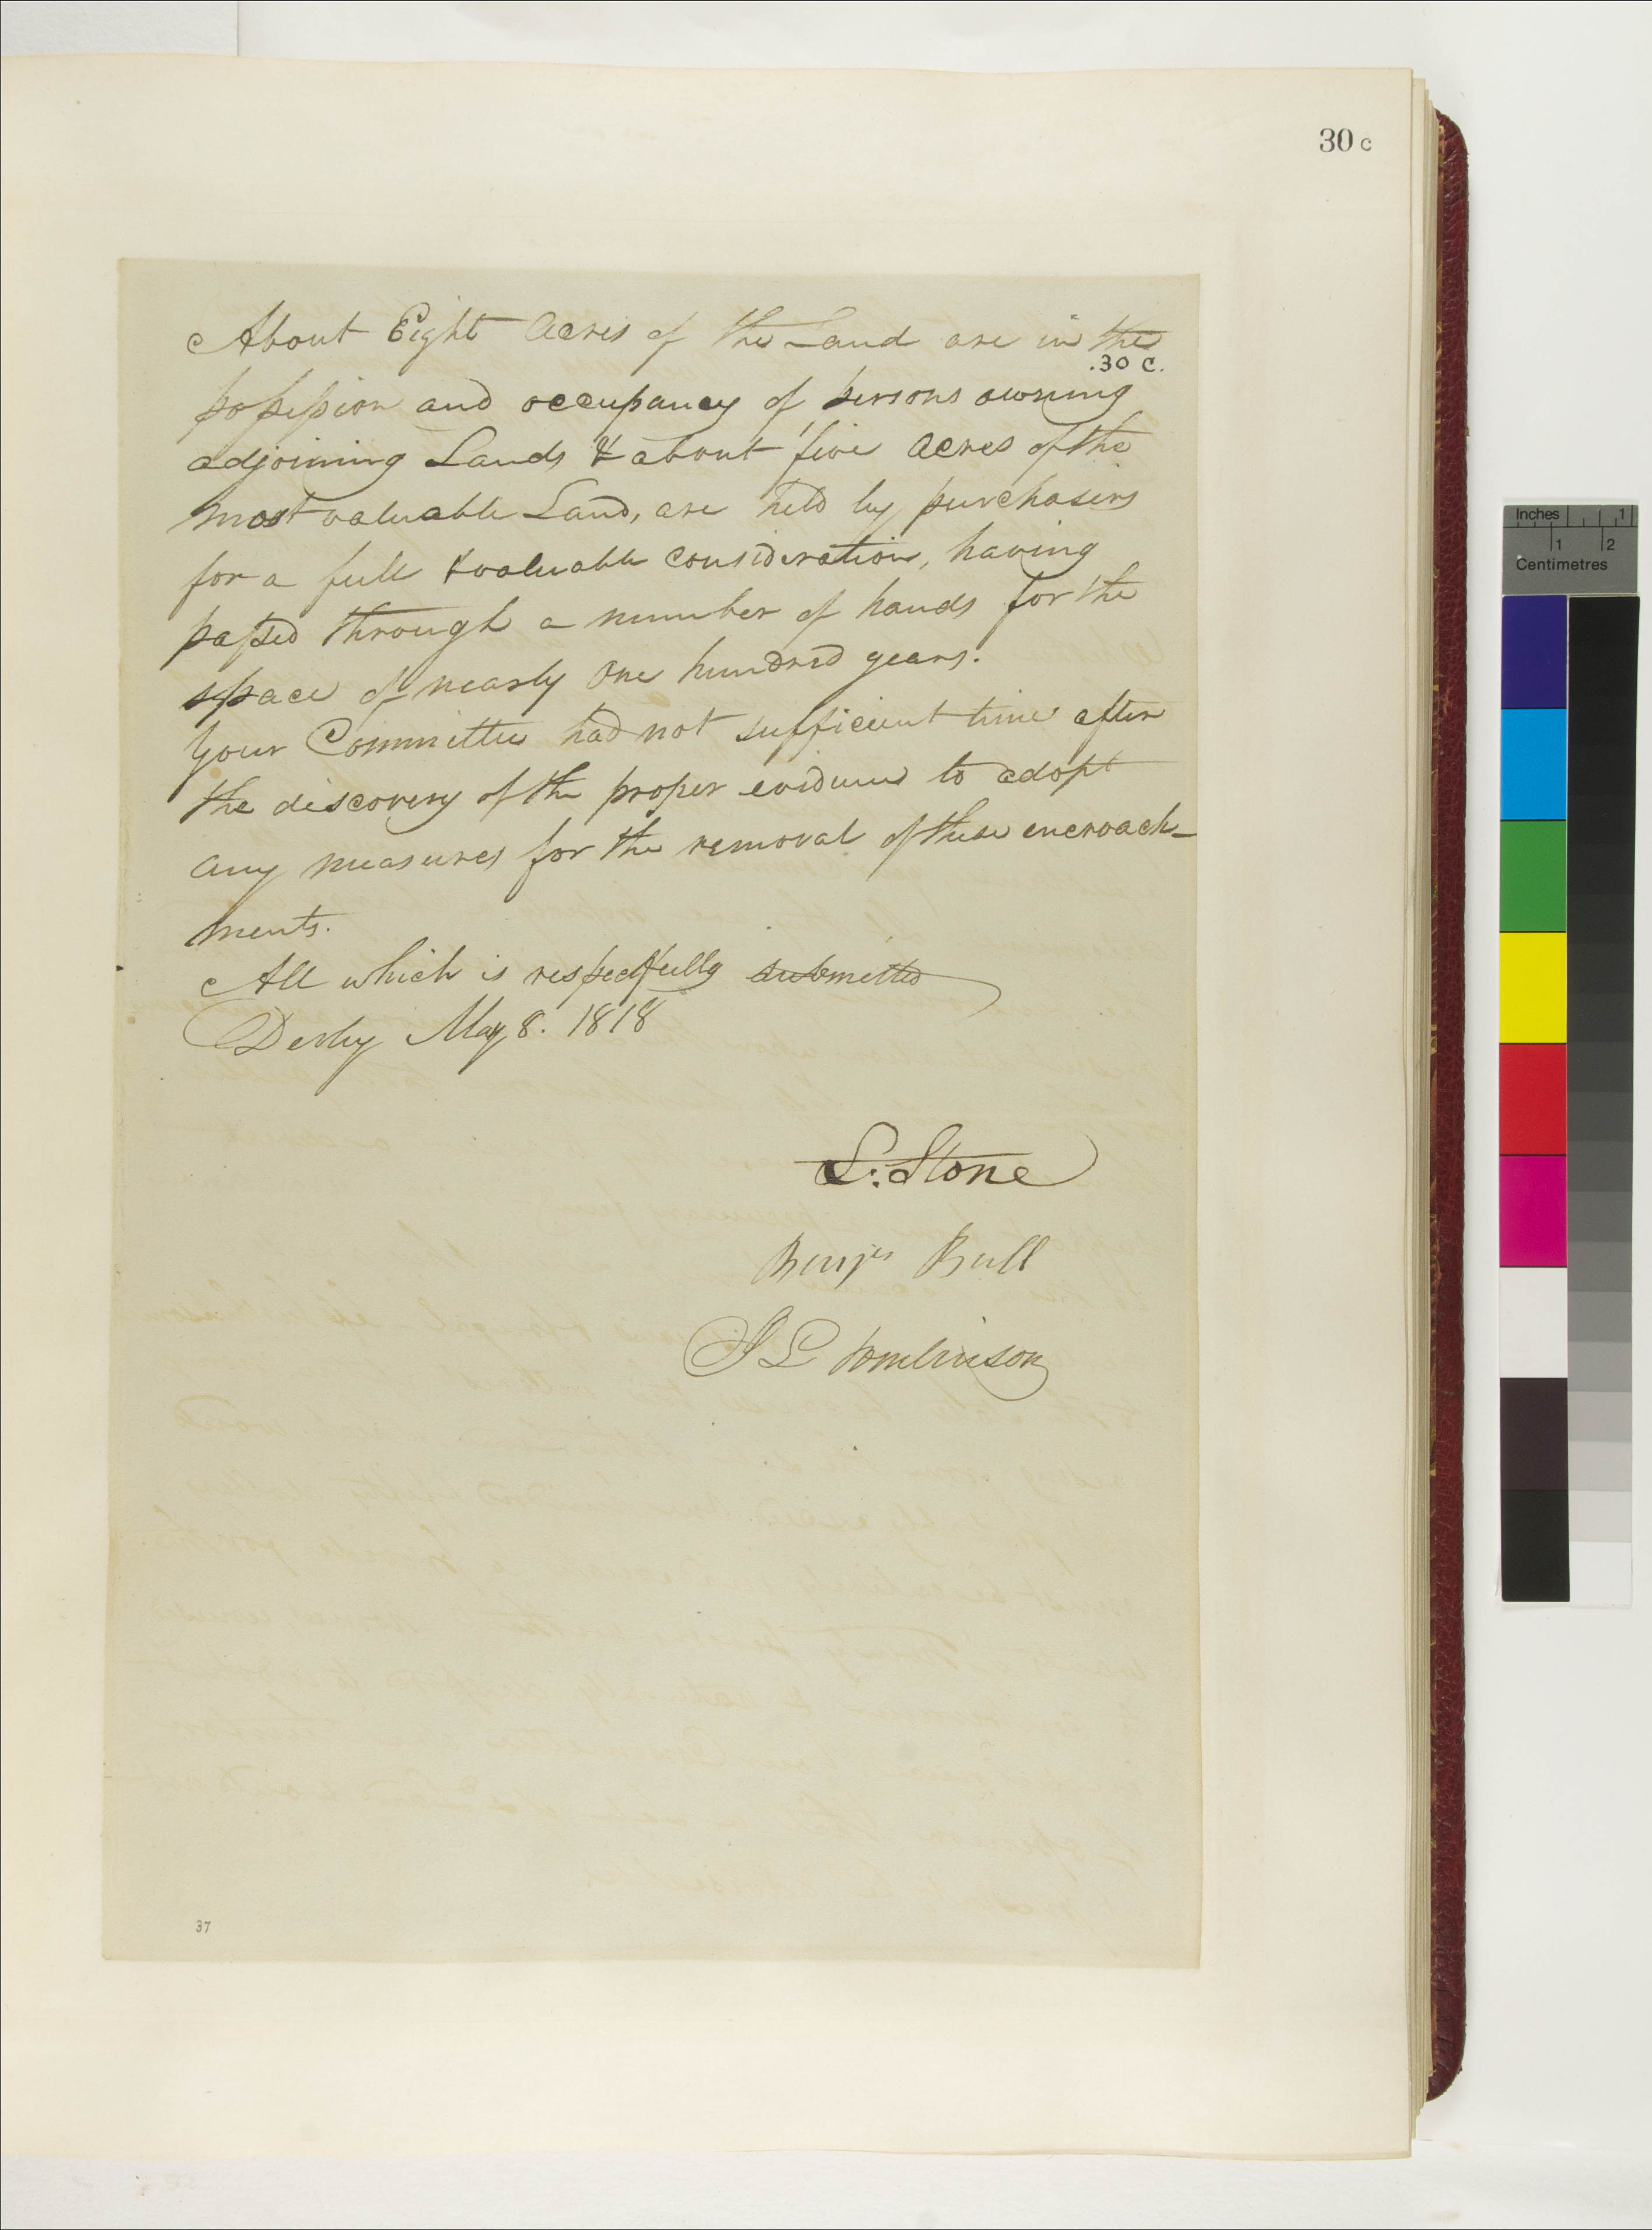 30 c
About Eight Acres of the Land are in the
.30 C.
possession and occupancy of persons owning
adjoining Lands & about five Acres of the
most valuable Land, are held by purchasers
for a full & valuable consideration, having
passed through a number of hands for the
space of nearly One hundred years.
Your Committee had not sufficient time after
the discovery of the proper evidence to adopt
any measures for the removal of these encroach-
ments.
All which is respectfully submitted
Derby May 8. 1818
S. Stone
Benjn Bull
J L Tomlinson
37
Inches 1
1 2
Centimetres